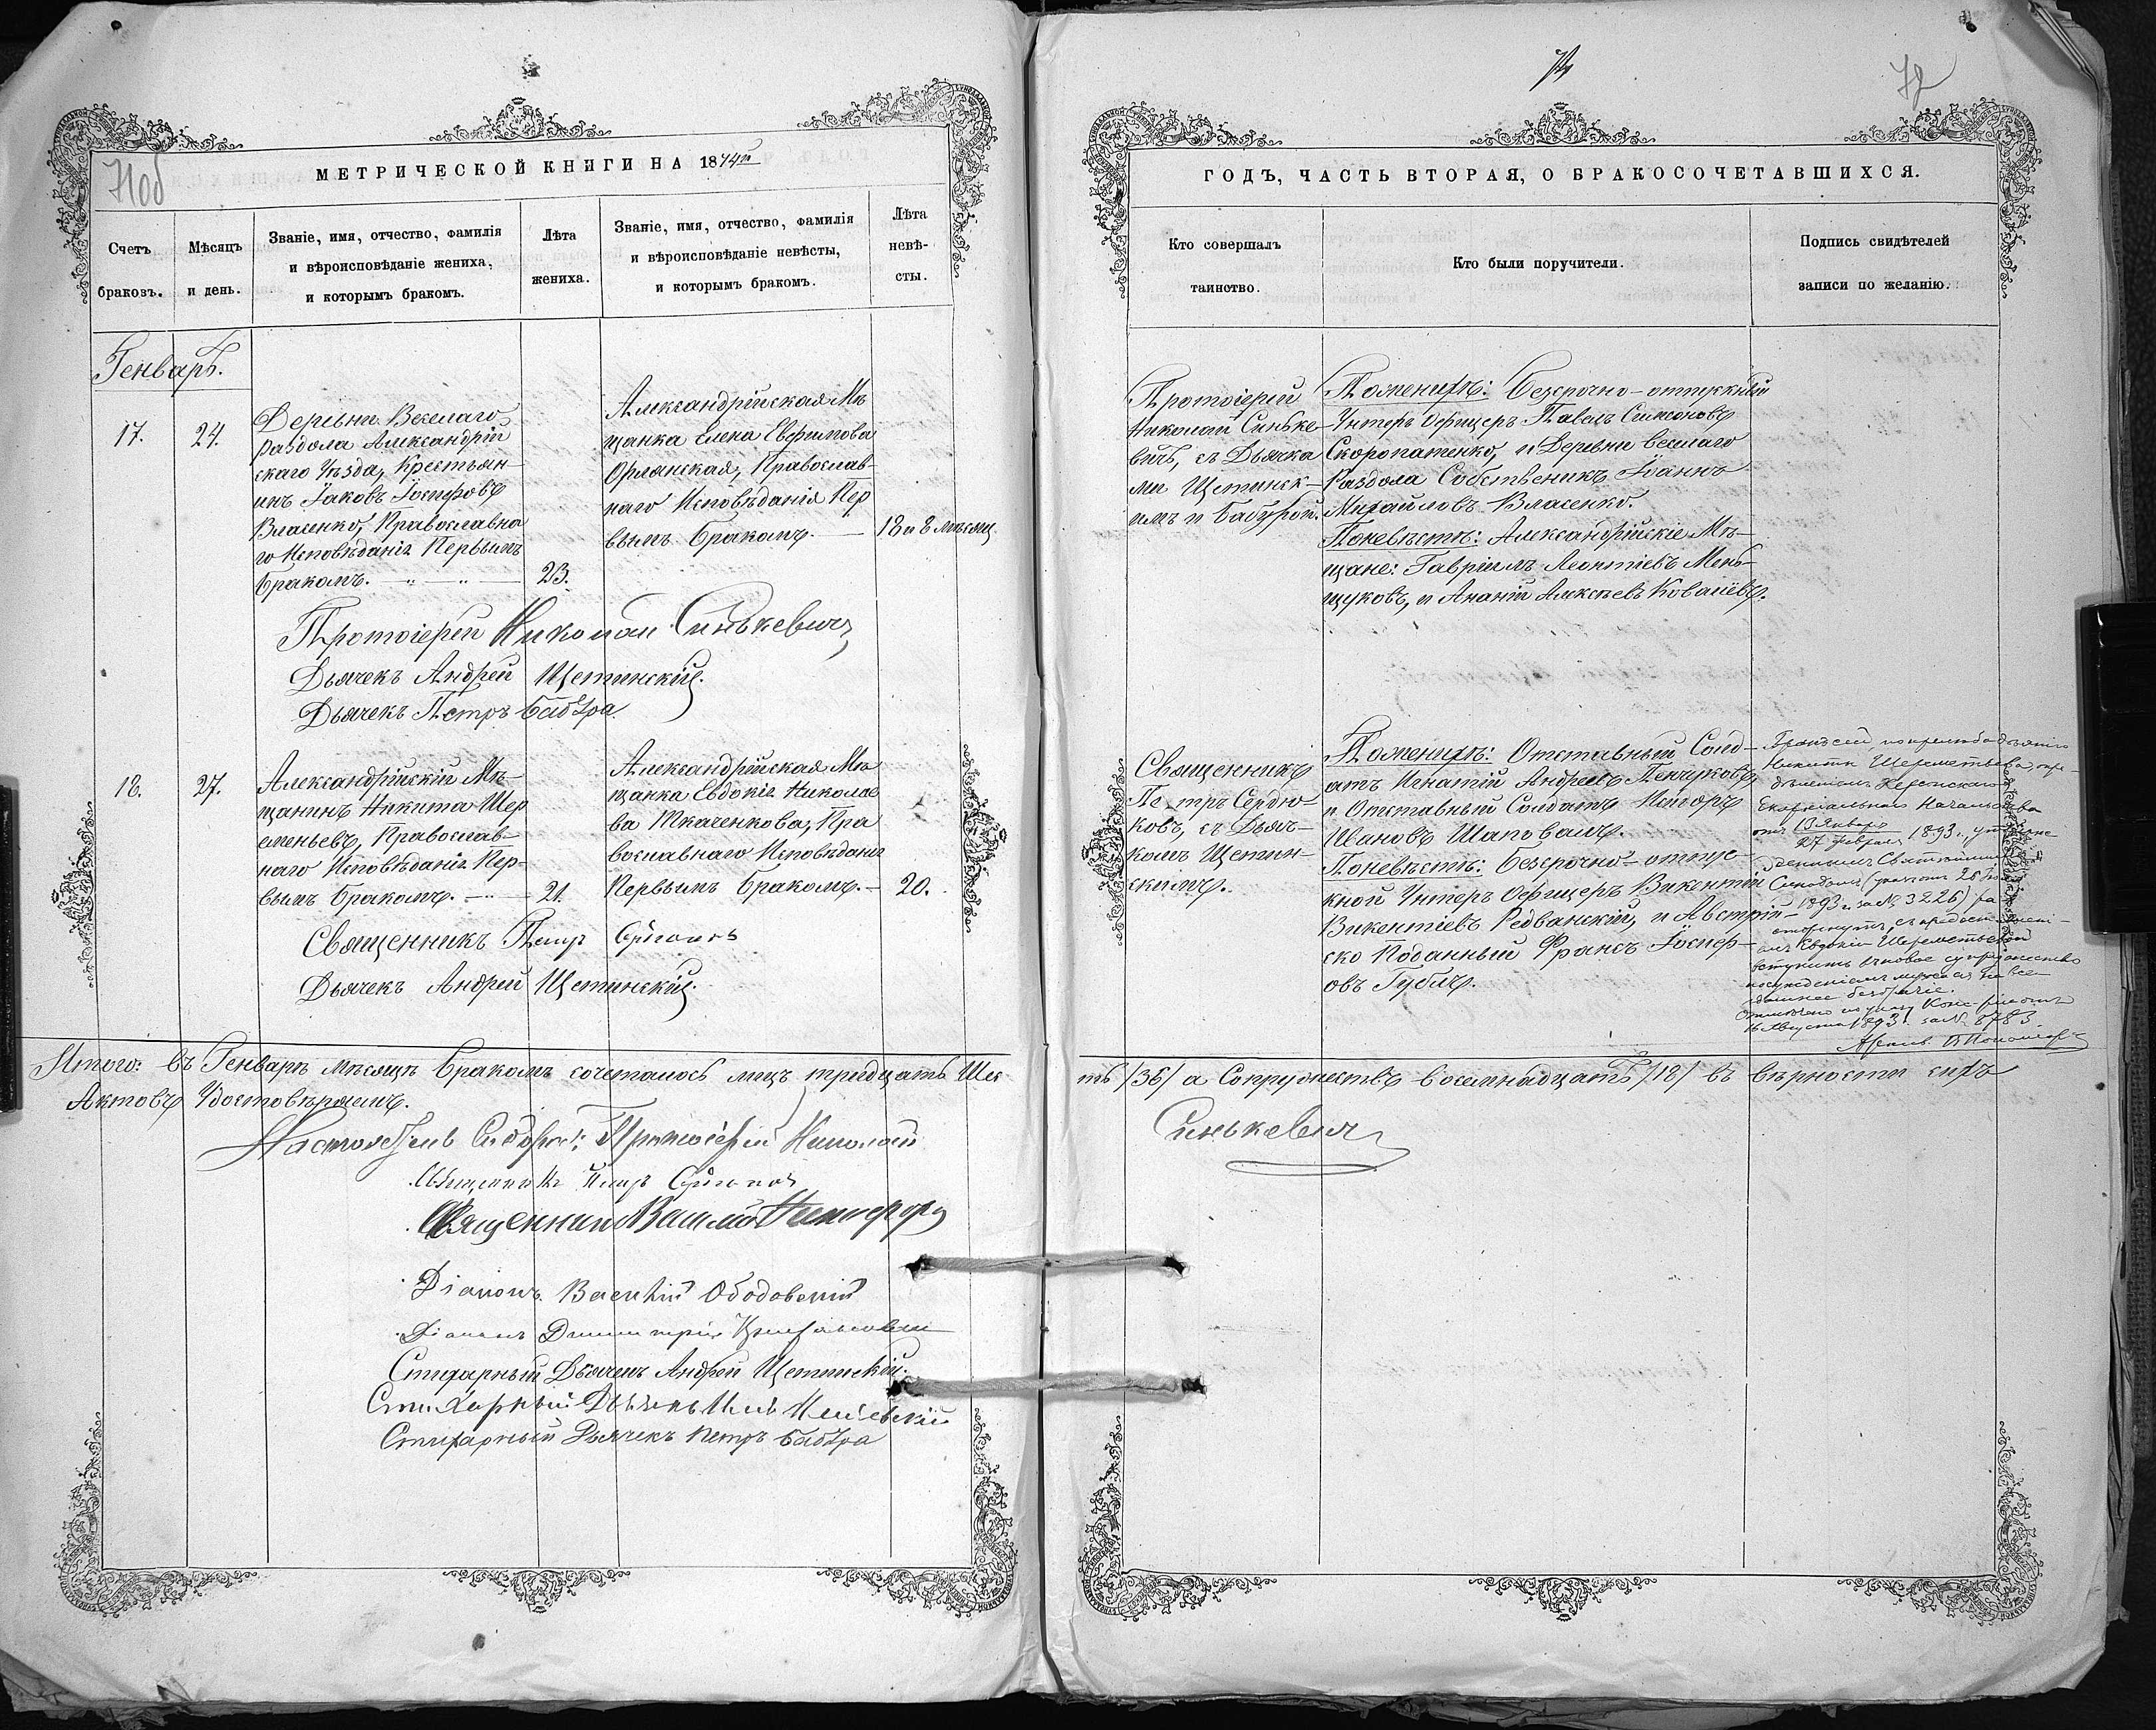 МЕТРИЧЕСКОЙ КНИГИ НА 1874й
Счетъ
браковъ.
Мѣсяцъ
и день.
Званіе, имя, отчество, фамилія
и вѣроисповѣданіе жениха,
и которымъ бракомъ.
Лѣта
жениха.
Званіе, имя, отчество, фамилія
и вѣроисповѣданіе невѣсты,
и которымъ бракомъ.
Лѣта
невѣ-
сты.
Генварь.
17.
24.
Деревни Веселаго
Раздола Александрій
скаго Уѣзда, Крестьян-
инъ Іаковъ Іосифовъ
Власенко, Православна
го Исповѣданія Первымъ
Бракомъ.
23.
Александрійская Мѣ
щанка Елена Евфимова
Орлянская, Православ-
наго Исповѣданія Пер
вымъ Бракомъ.
18 и 8 мѣсяц
Протоіерей Николай Синькевичъ
Дьячекъ Андрей Щетинскій.
Дьячекъ Петръ Бабура
18.
27.
Александрійскій Мѣ-
щанинъ Никита Шер
еметьевъ, Православ-
наго Исповѣданія Пер-
вымъ Бракомъ.
21.
Александрійская Мѣ
щанка Евдокія Николае
ва Ткаченкова, Пра
вославнаго Исповѣданія
Первымъ Бракомъ.
20.
Священникъ Петръ Сердюковъ
Дьячекъ Андрей Щетинскій.
Итого: въ Генварѣ мѣсяцѣ Бракомъ сочеталось лицъ тридцать Шес
Актовъ Удостовѣряемъ.
Настоятель Собора: Протоіерей Николай
Священникъ Петръ Сердюковъ
Священникъ Василій
Діаконъ Василій Ободовскій
Діаконъ Димитрій
Стихарный Дьячекъ Андрей Щетинскій.
Стихарный Дьячекъ
Стихарный Дьячекъ Петръ Бабура
72
ГОДЪ, ЧАСТЬ ВТОРАЯ, О БРАКОСОЧЕТАВШИХСЯ.
Кто совершалъ
таинство.
Кто были поручители.
Подпись свидѣтелей
записи по желанію.
Протоіерей
Николай Синьке-
вичъ, съ Дьячка
ми Щетинск-
имъ и Бабурой.
По женихѣ: Безсрочно-отпускный
Унтеръ Офицеръ Павелъ Симоновъ
Скоропатенко, и Деревни Веселаго
Раздола Собственикъ Іоаннъ
Михайловъ Власенко.
По невѣстѣ: Александрійскіе Мѣ-
щане: Гавріилъ Леонтіевъ Мень-
щуковъ, и Ананій Алексѣевъ Ковалёвъ.
Священникъ
Петръ Сердю-
ковъ, съ Дьяч-
комъ Щетин-
скимъ.
По женихѣ: Отставный Солд-
атъ Игнатій Андреевъ Пенчуковъ
и Отставный Солдатъ
Ивановъ Шаповалъ.
По невѣстѣ: Безсрочно-отпус-
кной Унтеръ Офицеръ Викентій
Викентіевъ Редванскій, и Австрій-
ско Подданный Францъ Іосиф-
овъ Губичъ.
Бракъ сей, по прелюбодѣянію
Никиты Шереметьева, опре-
дѣленіемъ Херсонскаго
Епархіальнаго Начальства
отъ 13 Января
27 Февраля 1893 г., утверж-
деннымъ Святѣйшимъ
Синодомъ (указомъ 26
1893 г. за № 3226) ра-
сторгнутъ, съ предоставлені-
емъ Евдокіи Шереметьевой
вступить въ новое супружество
и осужденіемъ мужа ея на все-
гдашнее безбрачіе.
Отмѣчено по указу Конс-ріи отъ
16 Августа 1893 г. за № 8783
ть /36/ а Супружествъ восемнадцать /18/ въ вѣрности сихъ
Синькевичъ